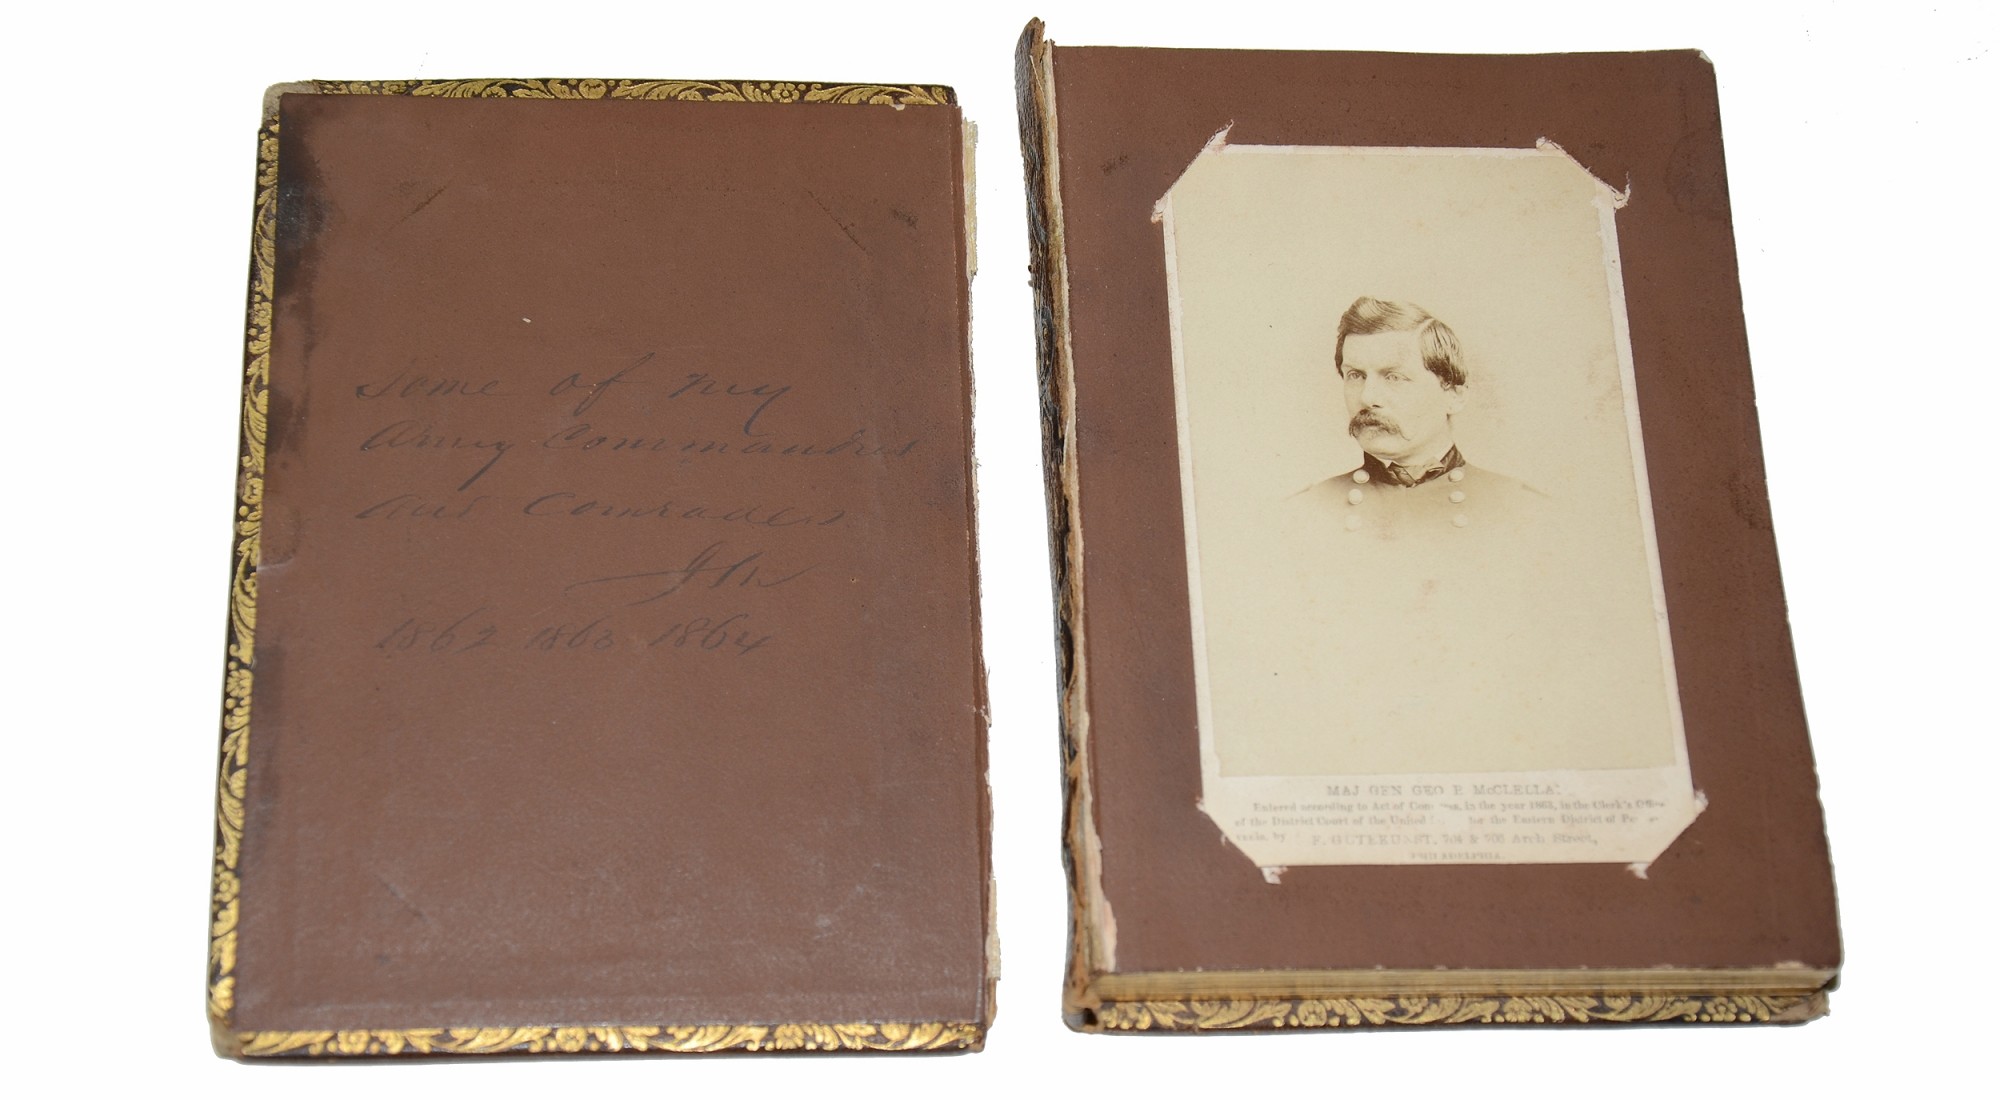 Some of my
Army Commanders
and Comrades
1862 1863 1864
MAJ GEN GEO B McCLELLA
Entered according to Act of Con ss, in the year 1862, in the Clerk's Office
of the District Court of the United for the Eastern District of Pe
vania, by F. GUTEKUNST, 704 & 706 Arch Street,
PHILADELPHIA.